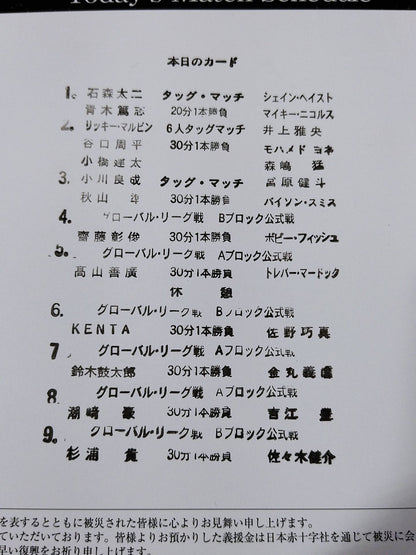 Today's Match Schedule
本日のカード
1. 石森太二 タッグ・マッチ シェイン・ヘイスト
青木篤志 20分1本勝負 マイキー・ニコルス
2. リッキー・マルビン 6人タッグマッチ 井上雅央
谷口周平 30分1本勝負 モハメド ヨネ
小橋建太 森嶋 猛
3. 小川良成 タッグ・マッチ 宮原健斗
秋山 準 30分1本勝負 バイソン・スミス
4. グローバル・リーグ戦 Bブロック公式戦
齋藤彰俊 30分1本勝負 ボビー・フィッシュ
5. グローバル・リーグ戦 Aブロック公式戦
高山善廣 30分1本勝負 トレバー・マードック
休 憩
6. グローバル・リーグ戦 Bブロック公式戦
KENTA 30分1本勝負 佐野巧真
7 グローバル・リーグ戦 Aブロック公式戦
鈴木鼓太郎 30分1本勝負 金丸義信
8 グローバル・リーグ戦 Aブロック公式戦
潮﨑 豪 30分1本勝負 吉江 豊
9. グローバル・リーグ戦 Bブロック公式戦
杉浦 貴 30分1本勝負 佐々木健介
を表するとともに被災された皆様に心よりお見舞い申し上げます。
ていただいております。皆様よりお預かりした義援金は日本赤十字社を通じて被災に会
早い復興をお祈り申し上げます。